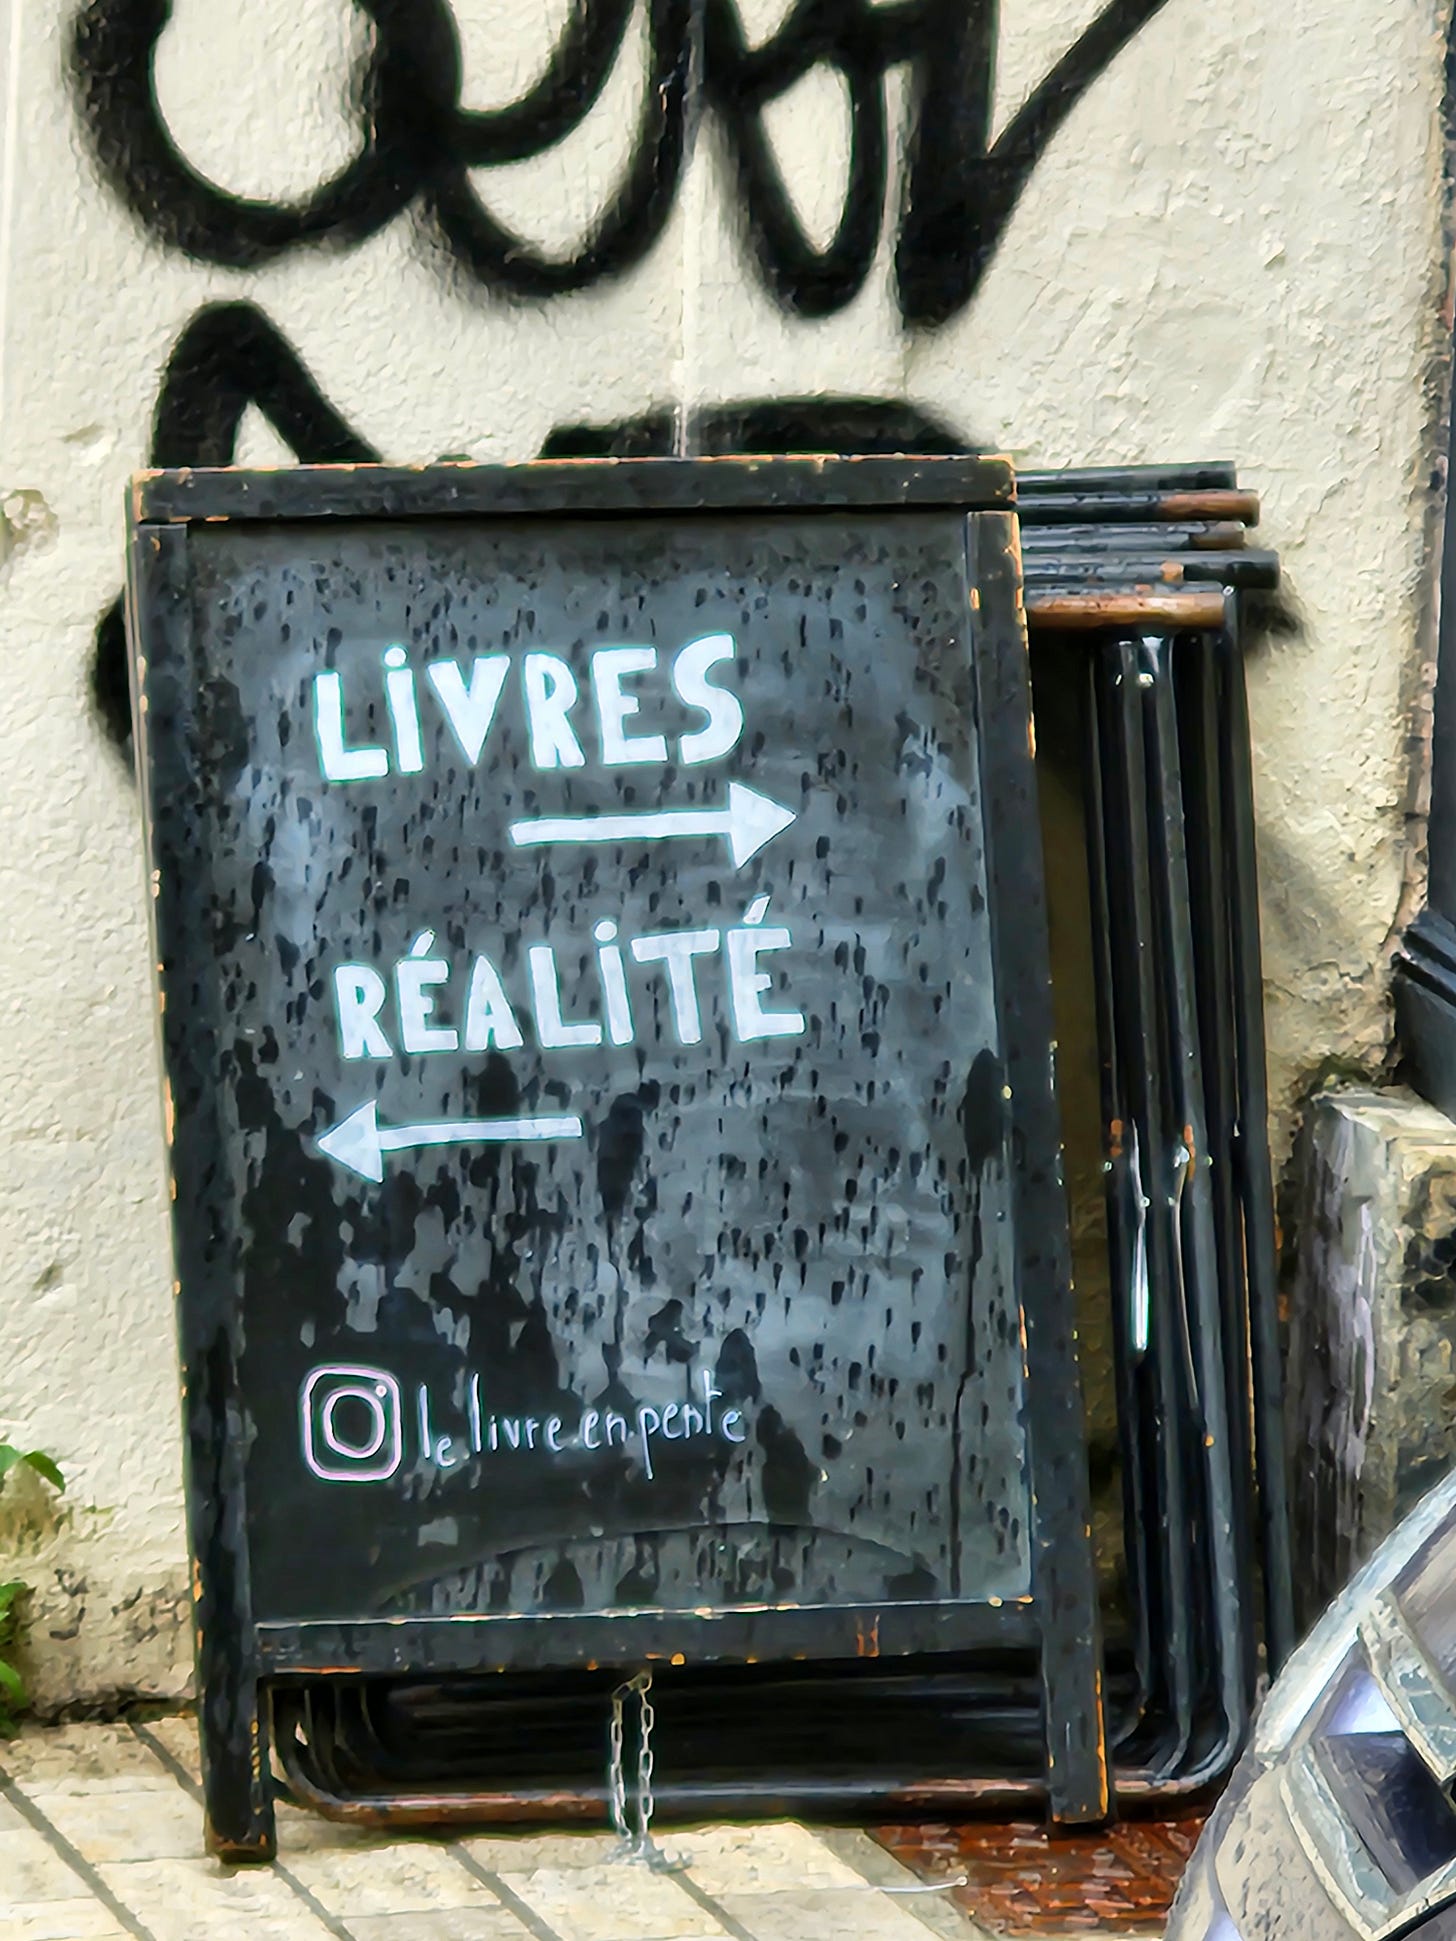 LiVRES
RÉALiTÉ
le.livre.en.pente